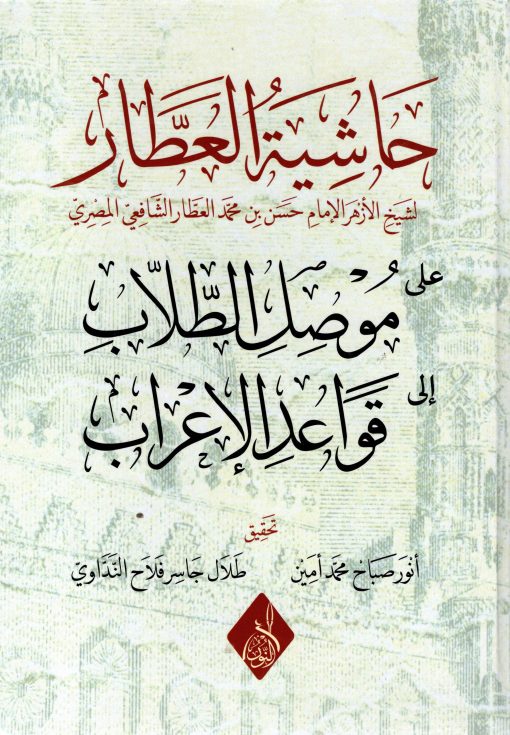 حَاشِيَةُ العَطَّار
لشيخ الأزهر الإمام حَسَن بن محمّد العطّار الشّافعيّ المِصْريّ
على
مُوْصِلِ الطُّلّابِ
إلى
قَوَاعِدِ الإِعْرَاب
تحقيق
أنْوَر صَبَاح محمَّد أمِيْن طَلَال جَاسِر فَلَاح النَّدَّاويّ
النور